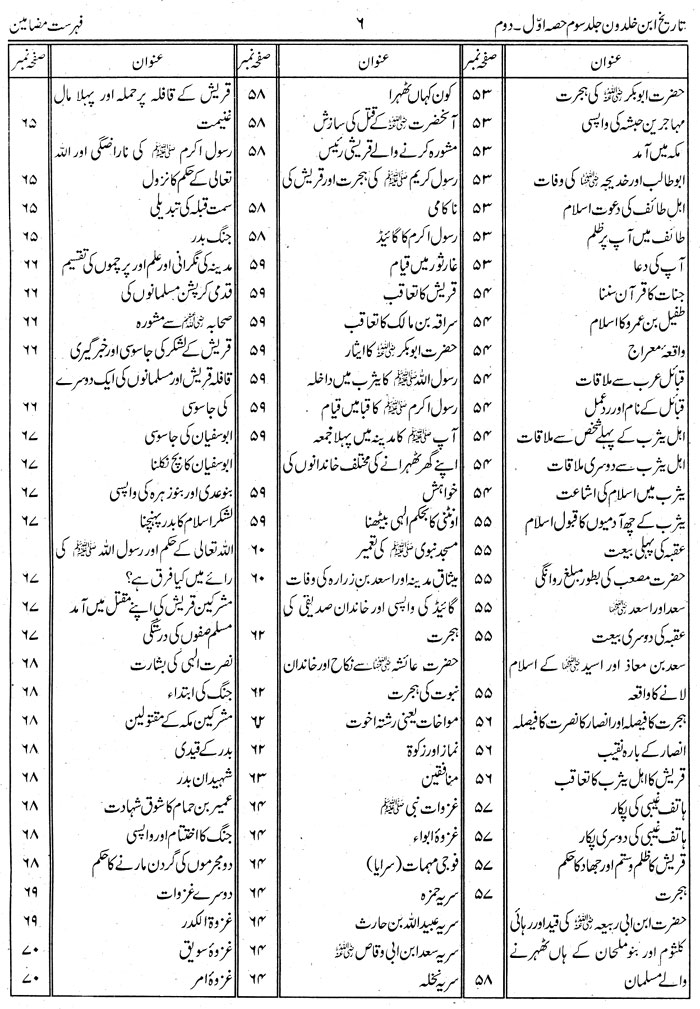 تاریخ ابن خلدون جلد سوم حصہ اوّل ۔ دوم
۶
فہرست مضامین
عنوان
صفحہ نمبر
حضرت ابوبکر رضی اللہ عنہ کی ہجرت ۵۳
مہاجرین حبشہ کی واپسی ۵۳
مکہ میں آمد ۵۳
ابوطالب اور خدیجہ رضی اللہ عنہا کی وفات ۵۳
اہل طائف کی دعوت اسلام ۵۳
طائف میں آپ پر ظلم ۵۳
آپ کی دعا ۵۳
جنات کا قرآن سننا ۵۴
طفیل بن عمرو کا اسلام ۵۴
واقعۂ معراج ۵۴
قبائل عرب سے ملاقات ۵۴
قبائل کے نام اور ردعمل ۵۴
اہل یثرب کے پہلے شخص سے ملاقات ۵۴
اہل یثرب سے دوسری ملاقات ۵۴
یثرب میں اسلام کی اشاعت ۵۴
یثرب کے چھ آدمیوں کا قبول اسلام ۵۵
عقبہ کی پہلی بیعت ۵۵
حضرت مصعب کی بطور مبلغ روانگی ۵۵
سعد اور اسعد رضی اللہ عنہما ۵۵
عقبہ کی دوسری بیعت ۵۵
سعد بن معاذ اور اسید رضی اللہ عنہما کے اسلام
لانے کا واقعہ ۵۵
ہجرت کا فیصلہ اور انصار کا نصرت کا فیصلہ ۵۶
انصار کے بارہ نقیب ۵۶
قریش کا اہل یثرب کا تعاقب ۵۶
ہاتف غیبی کی پکار ۵۷
ہاتف غیبی کی دوسری پکار
قریش کا ظلم و ستم اور جہاد کا حکم ۵۷
ہجرت ۵۷
حضرت ابن ابی ربیعہ رضی اللہ عنہ کی قید اور رہائی
کلثوم اور بنو ملحان کے ہاں ٹھہرنے
والے مسلمان ۵۸
عنوان
صفحہ نمبر
کون کہاں ٹھہرا ۵۸
آنحضرت صلی اللہ علیہ وسلم کے قتل کی سازش ۵۸
مشورہ کرنے والے قریشی رئیس ۵۸
رسول کریم صلی اللہ علیہ وسلم کی ہجرت اور قریش کی
ناکامی ۵۸
رسول اکرم کا گائیڈ ۵۸
غار ثور میں قیام ۵۹
قریش کا تعاقب ۵۹
سراقہ بن مالک کا تعاقب ۵۹
حضرت ابوبکر رضی اللہ عنہ کا ایثار ۵۹
رسول اللہ صلی اللہ علیہ وسلم کا یثرب میں داخلہ ۵۹
رسول اکرم صلی اللہ علیہ وسلم کا قبا میں قیام ۵۹
آپ صلی اللہ علیہ وسلم کا مدینہ میں پہلا جمعہ ۵۹
اپنے گھر ٹھہرانے کی مختلف خاندانوں کی
خواہش ۵۹
اونٹنی کا بحکم الہی بیٹھنا ۵۹
مسجد نبوی صلی اللہ علیہ وسلم کی تعمیر ۶۰
میثاق مدینہ اور اسعد بن زرارہ کی وفات ۶۰
گائیڈ کی واپسی اور خاندان صدیقی کی
ہجرت ۶۲
حضرت عائشہ رضی اللہ عنہا سے نکاح اور خاندان
نبوت کی ہجرت ۶۲
مواخات یعنی رشتۂ اخوت ۶۲
نماز اور زکوٰۃ ۶۲
منافقین ۶۳
غزوات نبی صلی اللہ علیہ وسلم ۶۴
غزوۂ ابواء ۶۴
فوجی مہمات (سرایا) ۶۴
سریہ حمزہ ۶۴
سریہ عبیداللہ بن حارث ۶۴
سریہ سعد ابن ابی وقاص رضی اللہ عنہ ۶۴
سریہ نخلہ ۶۴
عنوان
صفحہ نمبر
قریش کے قافلہ پر حملہ اور پہلا مال
غنیمت ۶۵
رسول اکرم صلی اللہ علیہ وسلم کی ناراضگی اور اللہ
تعالی کے حکم کا نزول ۶۵
سمت قبلہ کی تبدیلی ۶۵
جنگ بدر ۶۵
مدینہ کی نگرانی اور علم اور پرچموں کی تقسیم ۶۶
قدمی کرپشن مسلمانوں کی ۶۶
صحابہ رضی اللہ عنہم سے مشورہ ۶۶
قریش کے لشکر کی جاسوسی اور خبر گیری ۶۶
قافلہ قریش اور مسلمانوں کی ایک دوسرے
کی جاسوسی ۶۶
ابوسفیان کی جاسوسی ۶۷
ابوسفیان کا بچ نکلنا ۶۷
بنو عدی اور بنو زہرہ کی واپسی ۶۷
لشکر اسلام کا بدر پہنچنا ۶۷
اللہ تعالی کے حکم اور رسول اللہ صلی اللہ علیہ وسلم کی
رائے میں کیا فرق ہے؟ ۶۷
مشرکین قریش کی اپنے مقتل میں آمد ۶۷
مسلم صفوں کی درستگی ۶۷
نصرت الہی کی بشارت ۶۸
جنگ کی ابتداء ۶۸
مشرکین مکہ کے مقتولین ۶۸
بدر کے قیدی ۶۸
شہیدان بدر ۶۸
عمیر بن حمام کا شوق شہادت ۶۸
جنگ کا اختتام اور واپسی ۶۸
دو مجرموں کی گردن مارنے کا حکم ۶۸
دوسرے غزوات ۶۹
غزوۃ الکدر ۶۹
غزوۂ سویق ۷۰
غزوۂ امر ۷۰